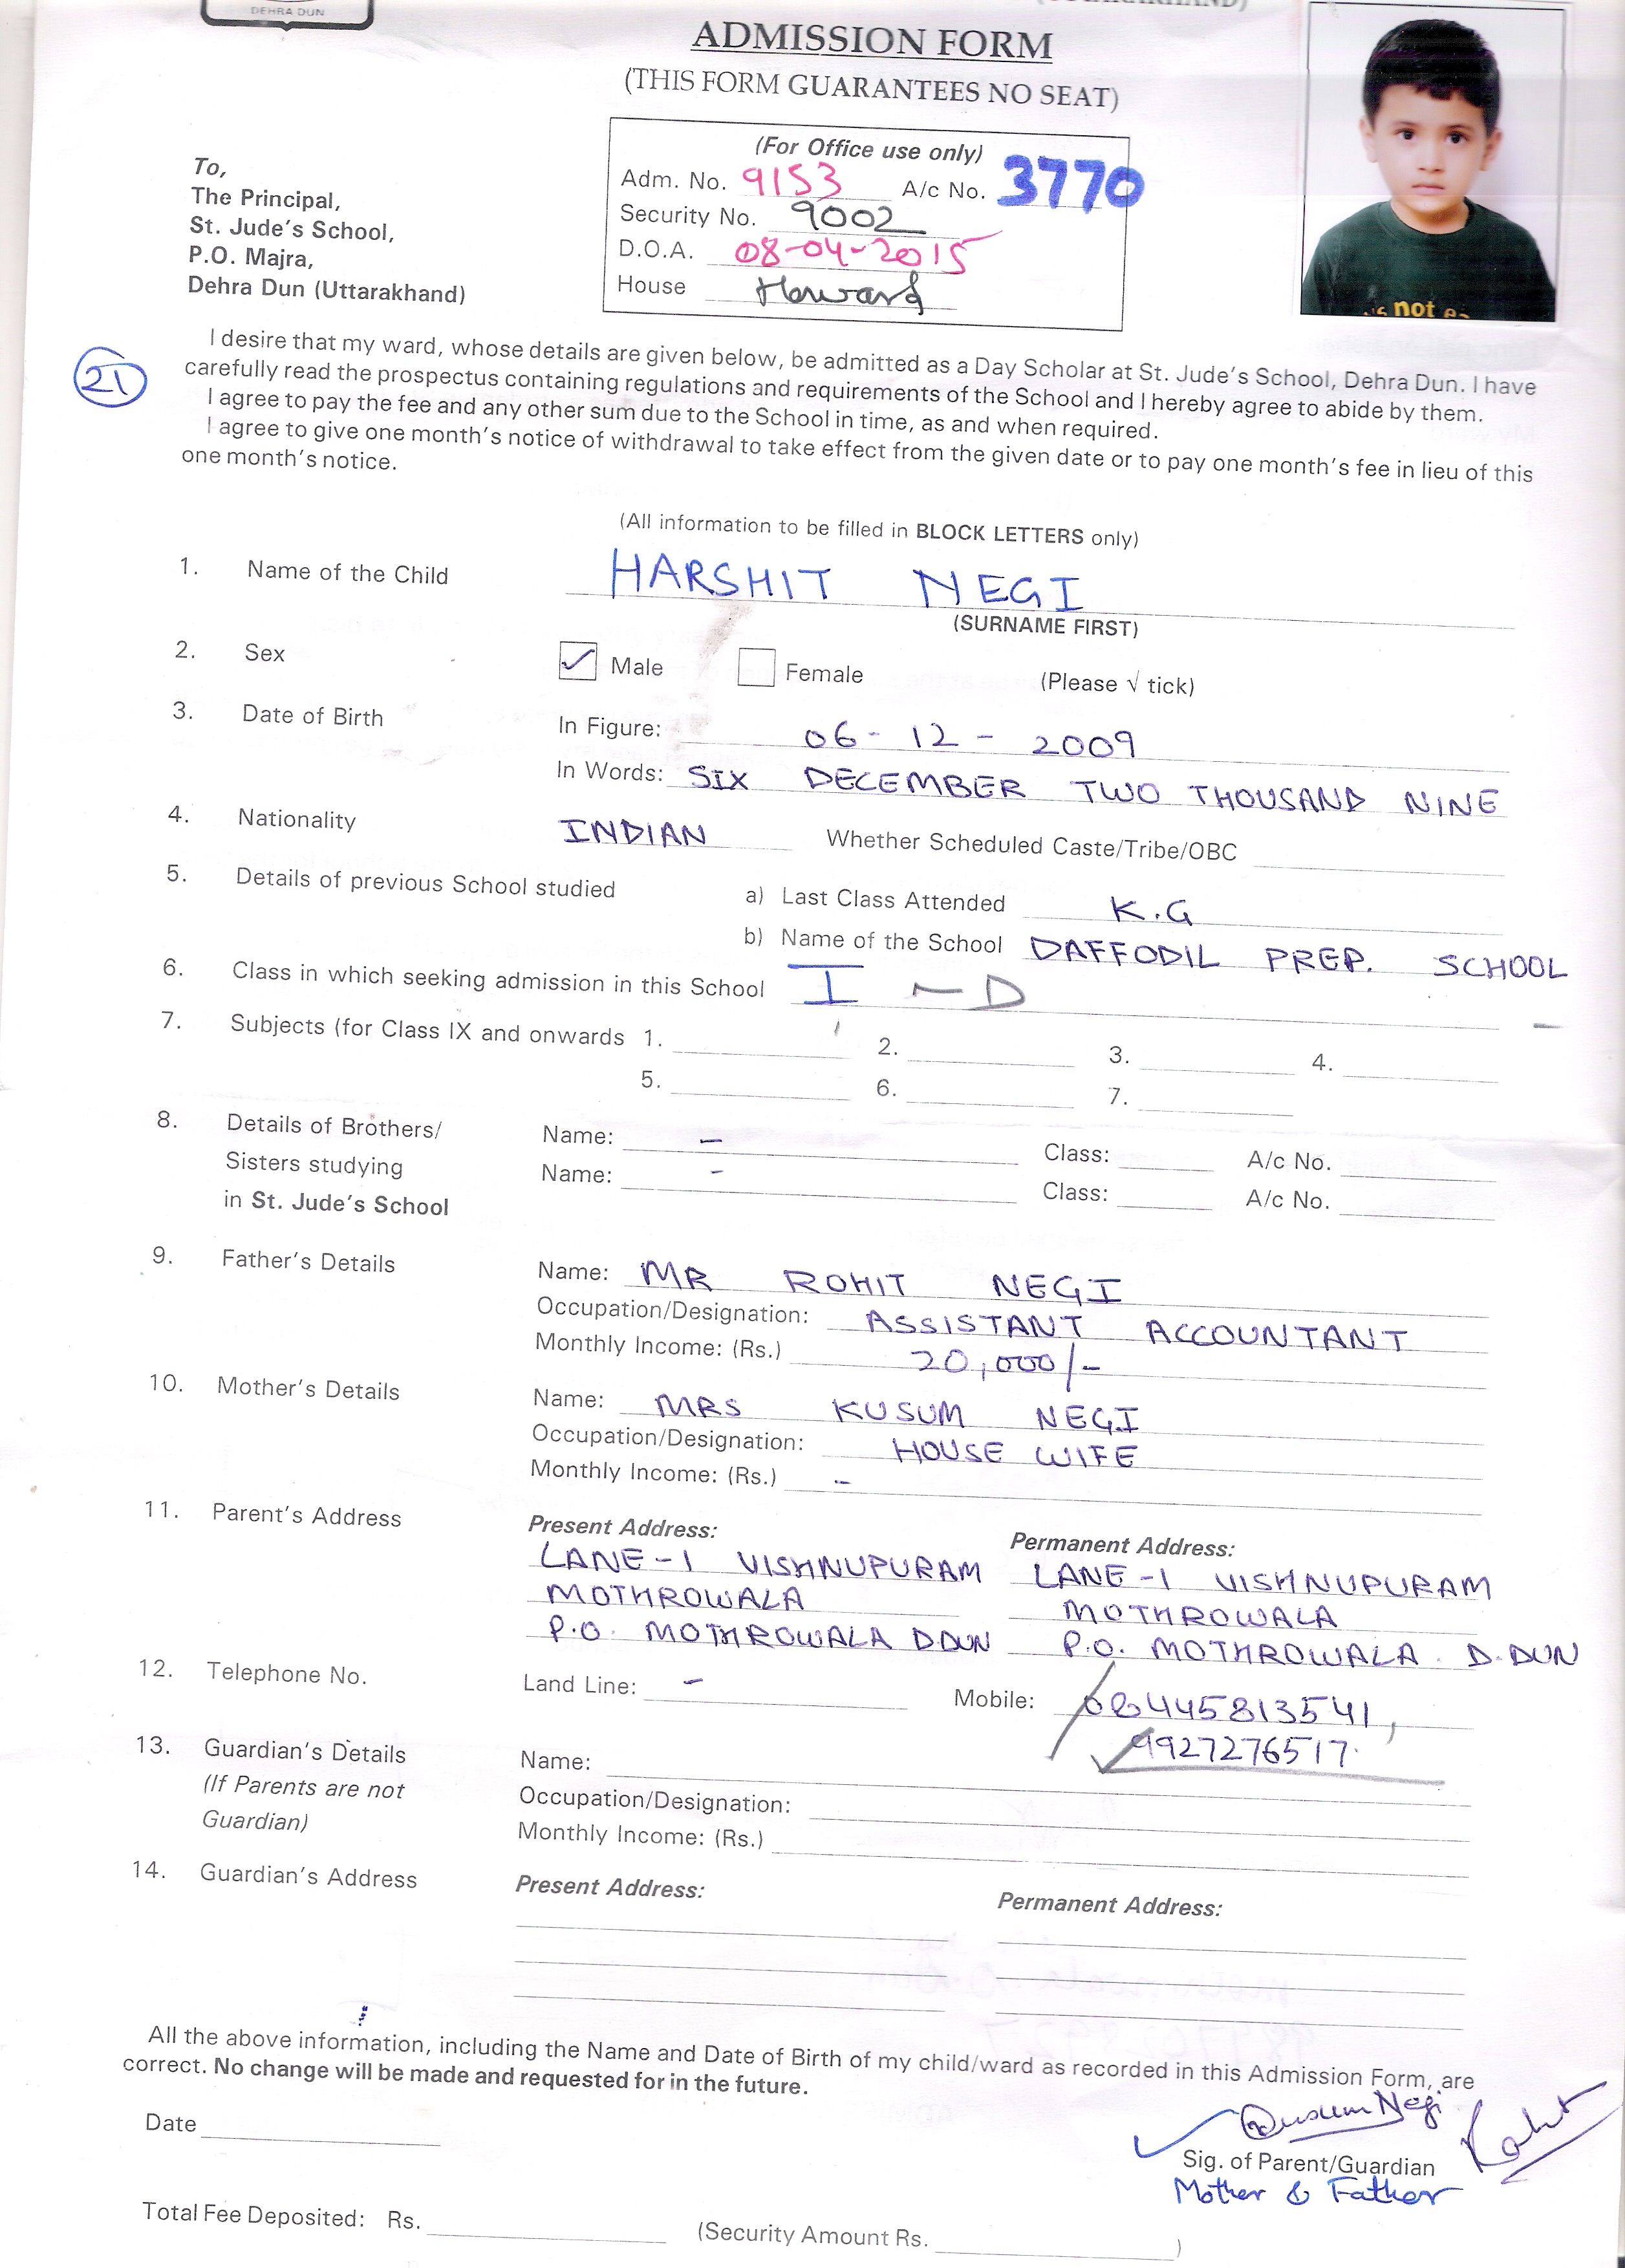 DEHRA DUN
ADMISSION FORM
(THIS FORM GUARANTEES NO SEAT)
To,
The Principal,
St. Jude's School,
P.O. Majra,
Dehra Dun (Uttarakhand)
(For Office use only)
Adm. No. 9153 A/c No. 3770
Security No. 9002
D.O.A. 08-04-2015
House Howard
not
21
I desire that my ward, whose details are given below, be admitted as a Day Scholar at St. Jude's School, Dehra Dun. I have
carefully read the prospectus containing regulations and requirements of the School and I hereby agree to abide by them.
I agree to pay the fee and any other sum due to the School in time, as and when required.
I agree to give one month's notice of withdrawal to take effect from the given date or to pay one month's fee in lieu of this
one month's notice.
(All information to be filled in BLOCK LETTERS only)
1. Name of the Child HARSHIT NEGI
(SURNAME FIRST)
2. Sex Male Female (Please √ tick)
3. Date of Birth In Figure: 06-12-2009
In Words: SIX DECEMBER TWO THOUSAND NINE
4. Nationality INDIAN Whether Scheduled Caste/Tribe/OBC
5. Details of previous School studied a) Last Class Attended K.G
b) Name of the School DAFFODIL PREP. SCHOOL
6. Class in which seeking admission in this School I - D
7. Subjects (for Class IX and onwards 1. 2. 3. 4.
5. 6. 7.
8. Details of Brothers/ Name: - Class: A/c No.
Sisters studying Name: - Class: A/c No.
in St. Jude's School
9. Father's Details Name: MR ROHIT NEGI
Occupation/Designation: ASSISTANT ACCOUNTANT
Monthly Income: (Rs.) 20,000/-
10. Mother's Details Name: MRS KUSUM NEGI
Occupation/Designation: HOUSE WIFE
Monthly Income: (Rs.) -
11. Parent's Address Present Address: Permanent Address:
LANE-1 VISHNUPURAM LANE-1 VISHNUPURAM
MOTHROWALA MOTHROWALA
P.O. MOTHROWALA D.DUN P.O. MOTHROWALA. D.DUN
12. Telephone No. Land Line: - Mobile: 08445813541,
9927276517.
13. Guardian's Details Name:
(If Parents are not Occupation/Designation:
Guardian) Monthly Income: (Rs.)
14. Guardian's Address Present Address: Permanent Address:
All the above information, including the Name and Date of Birth of my child/ward as recorded in this Admission Form, are
correct. No change will be made and requested for in the future.
Date
Kusum Negi Rohit
Sig. of Parent/Guardian
Mother & Father
Total Fee Deposited: Rs. (Security Amount Rs. )